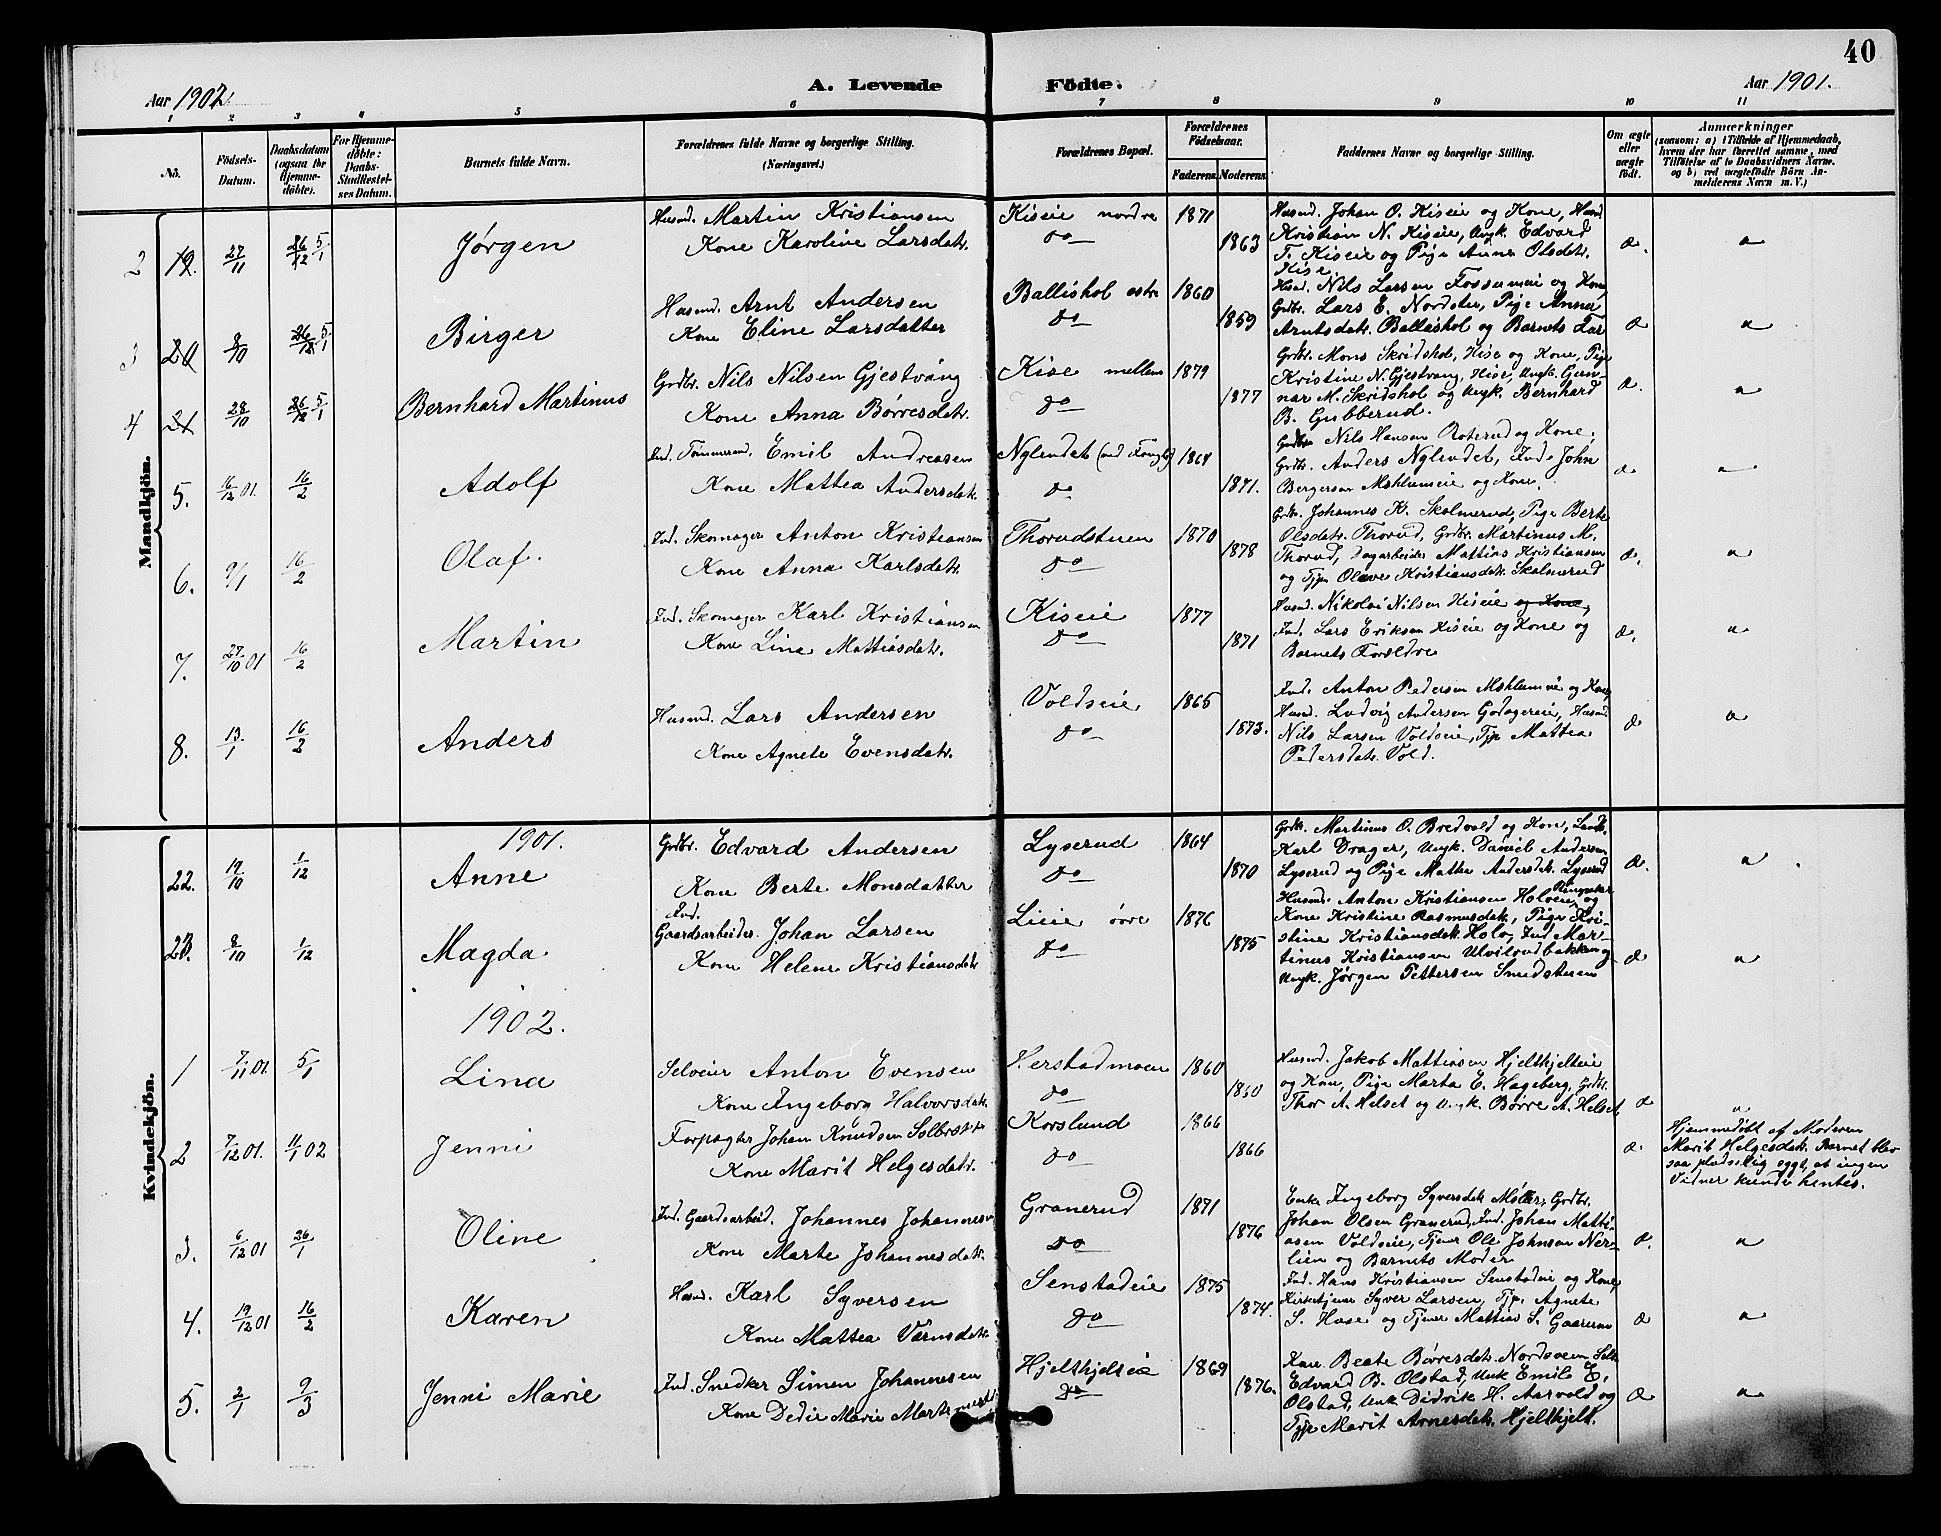 40
Aar 1902. A. Levende Födte. Aar 1901.
1 2 3 4 5 6 7 8 9 10 11
No.
Födsels-Datum.
Daabsdatum (ogsaa for Hjemmedöbte).
For Hjemmedöbte: Daabs-Stadfæstelses Datum.
Barnets fulde Navn.
Forældrenes fulde Navne og borgerlige Stilling. (Næringsvei.)
Forældrenes Bopæl.
Forældrenes Födselsaar.
Faderens. Moderens.
Faddernes Navne og borgerlige Stilling.
Om ægte eller uægte födt.
Anmærkninger
(saasom: a) i Tilfælde af Hjemmedaab, hvem der har forrettet samme, med Tilföielse af to Daabsvidners Navne, og b) ved uægtefödte Börn Anmelderens Navn m. V.)
Mandkjön.
2 19. 27/11 26/12 5/1 Jørgen
Husmd. Martin Kristiansen
Kone Karoline Larsdatr.
Kiseie nordre
do
1871
1863
Husmd. Johan O. Kiseie og Kone, Husmd
Kristian N. Kiseie, Ungk. Edvard
T. Kiseie og Pige Anne Olsdatr.
Kise
æ.
3 20 8/10 26/12 5/1 Birger
Husmd. Arnt Andersen
Kone Eline Larsdatter
Ballishol østre
do
1860
1859
Husmd. Nils Larsen Fosseneie og Kone,
Grdbr. Lars E. Nordster, Pige Anna
Arntsdatr. Ballishol og Barnets Far
æ
3 4 21 28/10 26/12 5/1 Bernhard Martinus
Grdbr. Nils Nilsen Gjestvang
Kone Anna Børresdatr.
Kise mellem
do
1879
1877
Grdbr. Mons Skridshol, Kise og Kone, Pige
Kristine N. Gjestvang, Kise, Ungk. Gunnar M. Skridshol og Ungk. Bernhard
B. Gubberud.
æ.
5. 16/12 01. 16/2 Adolf
Ind. Tømmermd. Emil Andreasen
Kone Mattea Andersdatr.
Nylendet
do
1864
1871.
Grdbr. Nils Hansen Roterud og Kone,
Grdbr. Anders Nylendet, Ind. John
Bergersen Mæhlumeie og Kone.
æ
6. 9/1 16/2 Olaf.
Ind. Skomager Anton Kristiansen
Kone Anna Karlsdatr.
Thorudstuen
do
1870
1878
Grdbr. Johannes K. Skolmerud, Pige Berte
Olsdatr. Thorud, Grdbr. Martinus M.
Thorud, Dagarbeider Mattias Kristiansen
og Tjp. Olave Kristiansdatr. Skolmerud
æ.
7. 27/10 01 16/2 Martin
Ind. Skomager Karl Kristiansen
Kone Lina Mattiasdatr.
Kiseie
do
1877
1871
Husmd. Nikolai Nilsen Kiseie og Kone,
Ind. Lars Eriksen Kiseie og Kone og
Barnets Forældre
æ.
8. 13/1 16/2 Anders
Husmd. Lars Andersen
Kone Agnete Evensdatr.
Voldseie
do
1865
1873.
Ind. Anton Pedersen Mæhlumeie og Kone,
Husmd. Ludvig Andersen Godagereie, Husmd.
Nils Larsen Voldseie, Tjp. Mattea
Pedersdatr. Vold.
æ
Kvindekjön.
1901.
22. 19/10 1/12 Anne
Grdbr. Edvard Andersen
Kone Berte Monsdatter
Lyserud
do
1864
1870
Grdbr. Martinus O. Bredvold og Kone, Landh.
Karl Drager, Ungk. Daniel Andersen
Lyserud og Pige Mathea Andersdatr. Lyserud
æ.
23. 8/10 1/12 Magda
Ind.
Gaardsarbeider Johan Larsen
Kone Helene Kristiansdatr
Lieie øvre
do
1876
1875
Husmd. Anton Kristiansen Holoeie, Ringsaker og
Kone Kristine Rasmusdatr, Pige Kristine Kristiansdatr. Holo, Ind Martinus Kristiansen Ulvilsrudbakken og
Ungk. Jørgen Pettersen Smedstuen
æ
1902.
1 7/11 01. 5/1 Lina
Selveier Anton Evensen
Kone Ingeborg Halvorsdatr.
Herstadmoen
do
1860
1860
Husmd. Jakob Mattiasen Hjelthjelteie
og Kone, Pige Marta E. Hageberg, Grdbr.
Thor A. Helset og Ungk. Børre A. Helset
æ
2 7/12 01. 11/1 02 Jenni
Forpagter Johan Knudsen
Kone Marit Helgesdatr.
Korslund
do
1866
1866
æ.
Hjemmedöbt af Moderen
Marit Helgesdatr. Barnet blev
saa pludselig sygt, at ingen
Vidner kunde hentes.
3. 6/12 01 26/1 Oline
Ind. Gaardsarbeid. Johannes Johannesen
Kone Marte Johannesdatr.
Granerud
do
1871
1876
Enke Ingeborg Syversdatr Møller, Grdbr.
Johan Olsen Granerud, Ind. Johan Mattiasen Voldseie, Tjener Ole Johnsen Nerlien og Barnets Moder
æ.
4. 19/12 01 16/2 Karen
Husmd. Karl Syversen
Kone Mattea
Senstadeie
do
1875
1874.
Ind. Hans Kristiansen Senstadeie og Kone,
Kirketjener Syver Larsen, Tjp. Agnete
S. Huse og Tjener Mattias S. Gaarerne
æ
5. 2/1 9/3 Jenni Marie
Ind. Snedker Simen Johannesen
Kone Dedie Marie
Hjelthjelseie
do
1869
1876.
Kone Beate Børresdatr. Nordsveen
Edvard B. Olstad, Unk Emil E.
Olstad, Unk Didrik H. Aasvold og
Tjp Marit Arnesdatr. Hjelthjelt.
æ